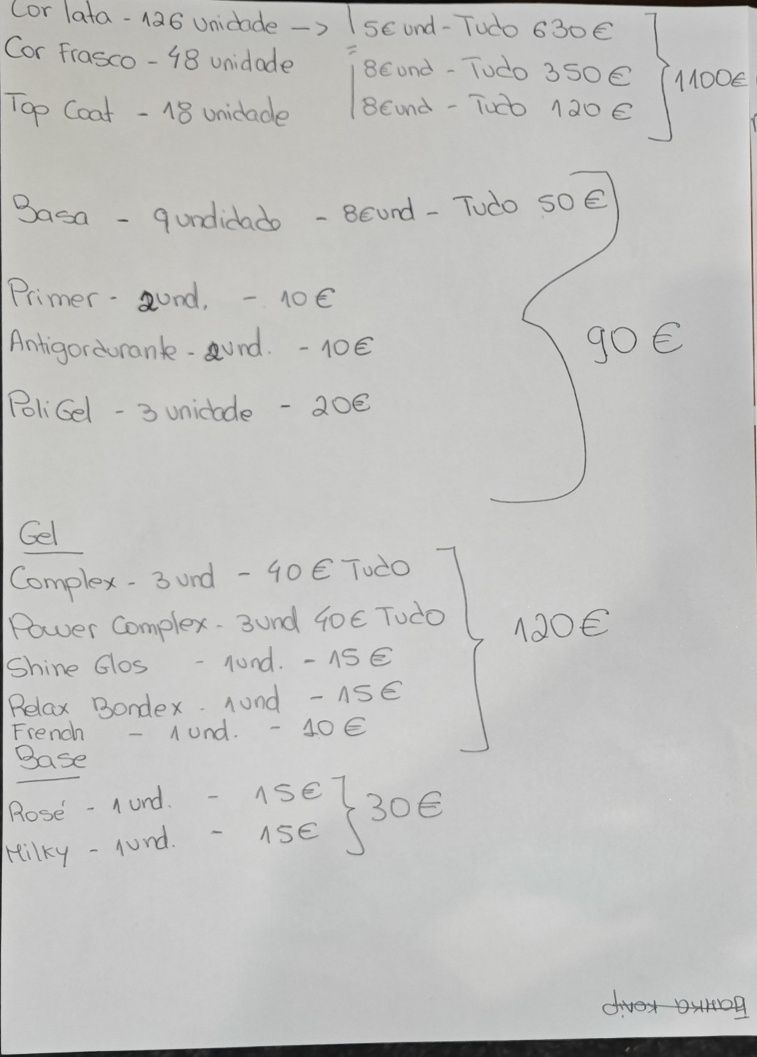 Cor lata - 126 unidade -> 5€ und - Tudo 630€
Cor Frasco - 48 unidade = 8€und - Tudo 350€
Top Coat - 18 unidade 8€und - Tudo 120€
1100€
Basa - 9 undidado - 8€und - Tudo 50€
Primer - 2und. - 10€
Antigordurante - 2und. - 10€
90€
PoliGel - 3 unidade - 20€
Gel
Complex - 3 und - 40€ Tudo
Power Complex - 3und 40€ Tudo
120€
Shine Glos - 1und. - 15€
Relax Bondex - 1und - 15€
French - 1und. - 10€
Base
Rosé - 1und. - 15€
30€
Milky - 1und. - 15€
Банка колір